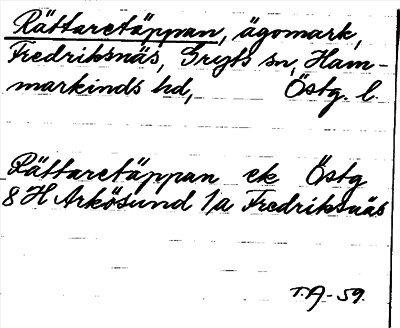 Rättaretäppan, ägomark,
Fredriksnäs, Gryts sn, Ham-
markinds hd, Östg. l.
Rättaretäppan ek Östg
8 H Arkösund 1/a Fredriksnäs
T.A-59.